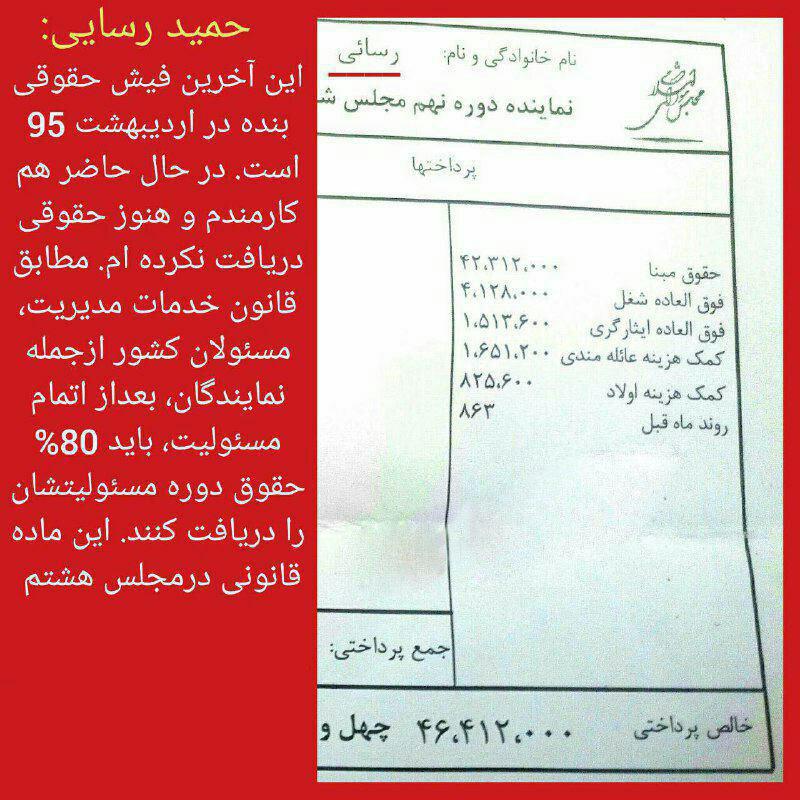 حمید رسایی:
این آخرین فیش حقوقی
بنده در اردیبهشت 95
است. در حال حاضر هم
کارمندم و هنوز حقوقی
دریافت نکرده ام. مطابق
قانون خدمات مدیریت،
مسئولان کشور ازجمله
نمایندگان، بعداز اتمام
مسئولیت، باید 80%
حقوق دوره مسئولیتشان
را دریافت کنند. این ماده
قانونی درمجلس هشتم
نام خانوادگی و نام: رسائی
نماینده دوره نهم مجلس
پرداختها
حقوق مبنا ۴۲،۳۱۲،۰۰۰
فوق العاده شغل ۴،۱۲۸،۰۰۰
فوق العاده ایثارگری ۱،۵۱۳،۶۰۰
کمک هزینه عائله مندی ۱،۶۵۱،۲۰۰
کمک هزینه اولاد ۸۲۵،۶۰۰
روند ماه قبل ۸۶۳
جمع پرداختی:
خالص پرداختی ۴۶،۴۱۲،۰۰۰ چهل و